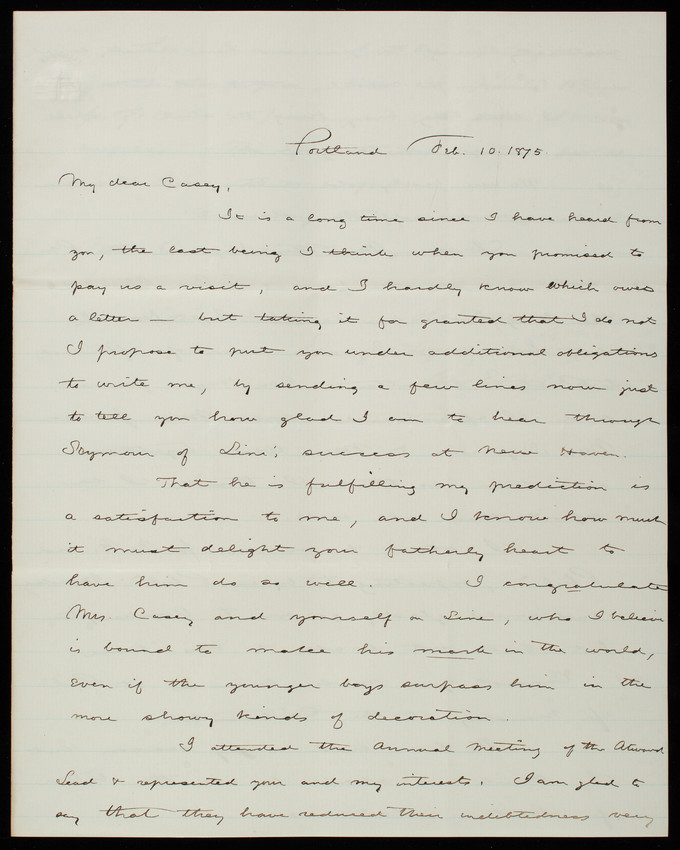 Portland Feb. 10. 1875
My dear Casey,
It is a long time since I have heard from
you, the last being I think when you promised to
pay us a visit, and I hardly know which owes
a letter — but taking it for granted that I do not
I propose to put you under additional obligations
to write me, by sending a few lines now just
to tell you how glad I am to hear through
Seymour of Linc's success at New Haven.
That he is fulfilling my prediction is
a satisfaction to me, and I know how much
it must delight your fatherly heart to
have him do so well. I congratulate
Mrs. Casey and yourself on Linc, who I believe
is bound to make his mark in the world,
even if the younger boys surpass him in the
more showy kinds of decoration.
I attended the Annual Meeting of the Atwood
Lead & represented your and my interests. I am glad to
say that they have reduced their indebtedness very